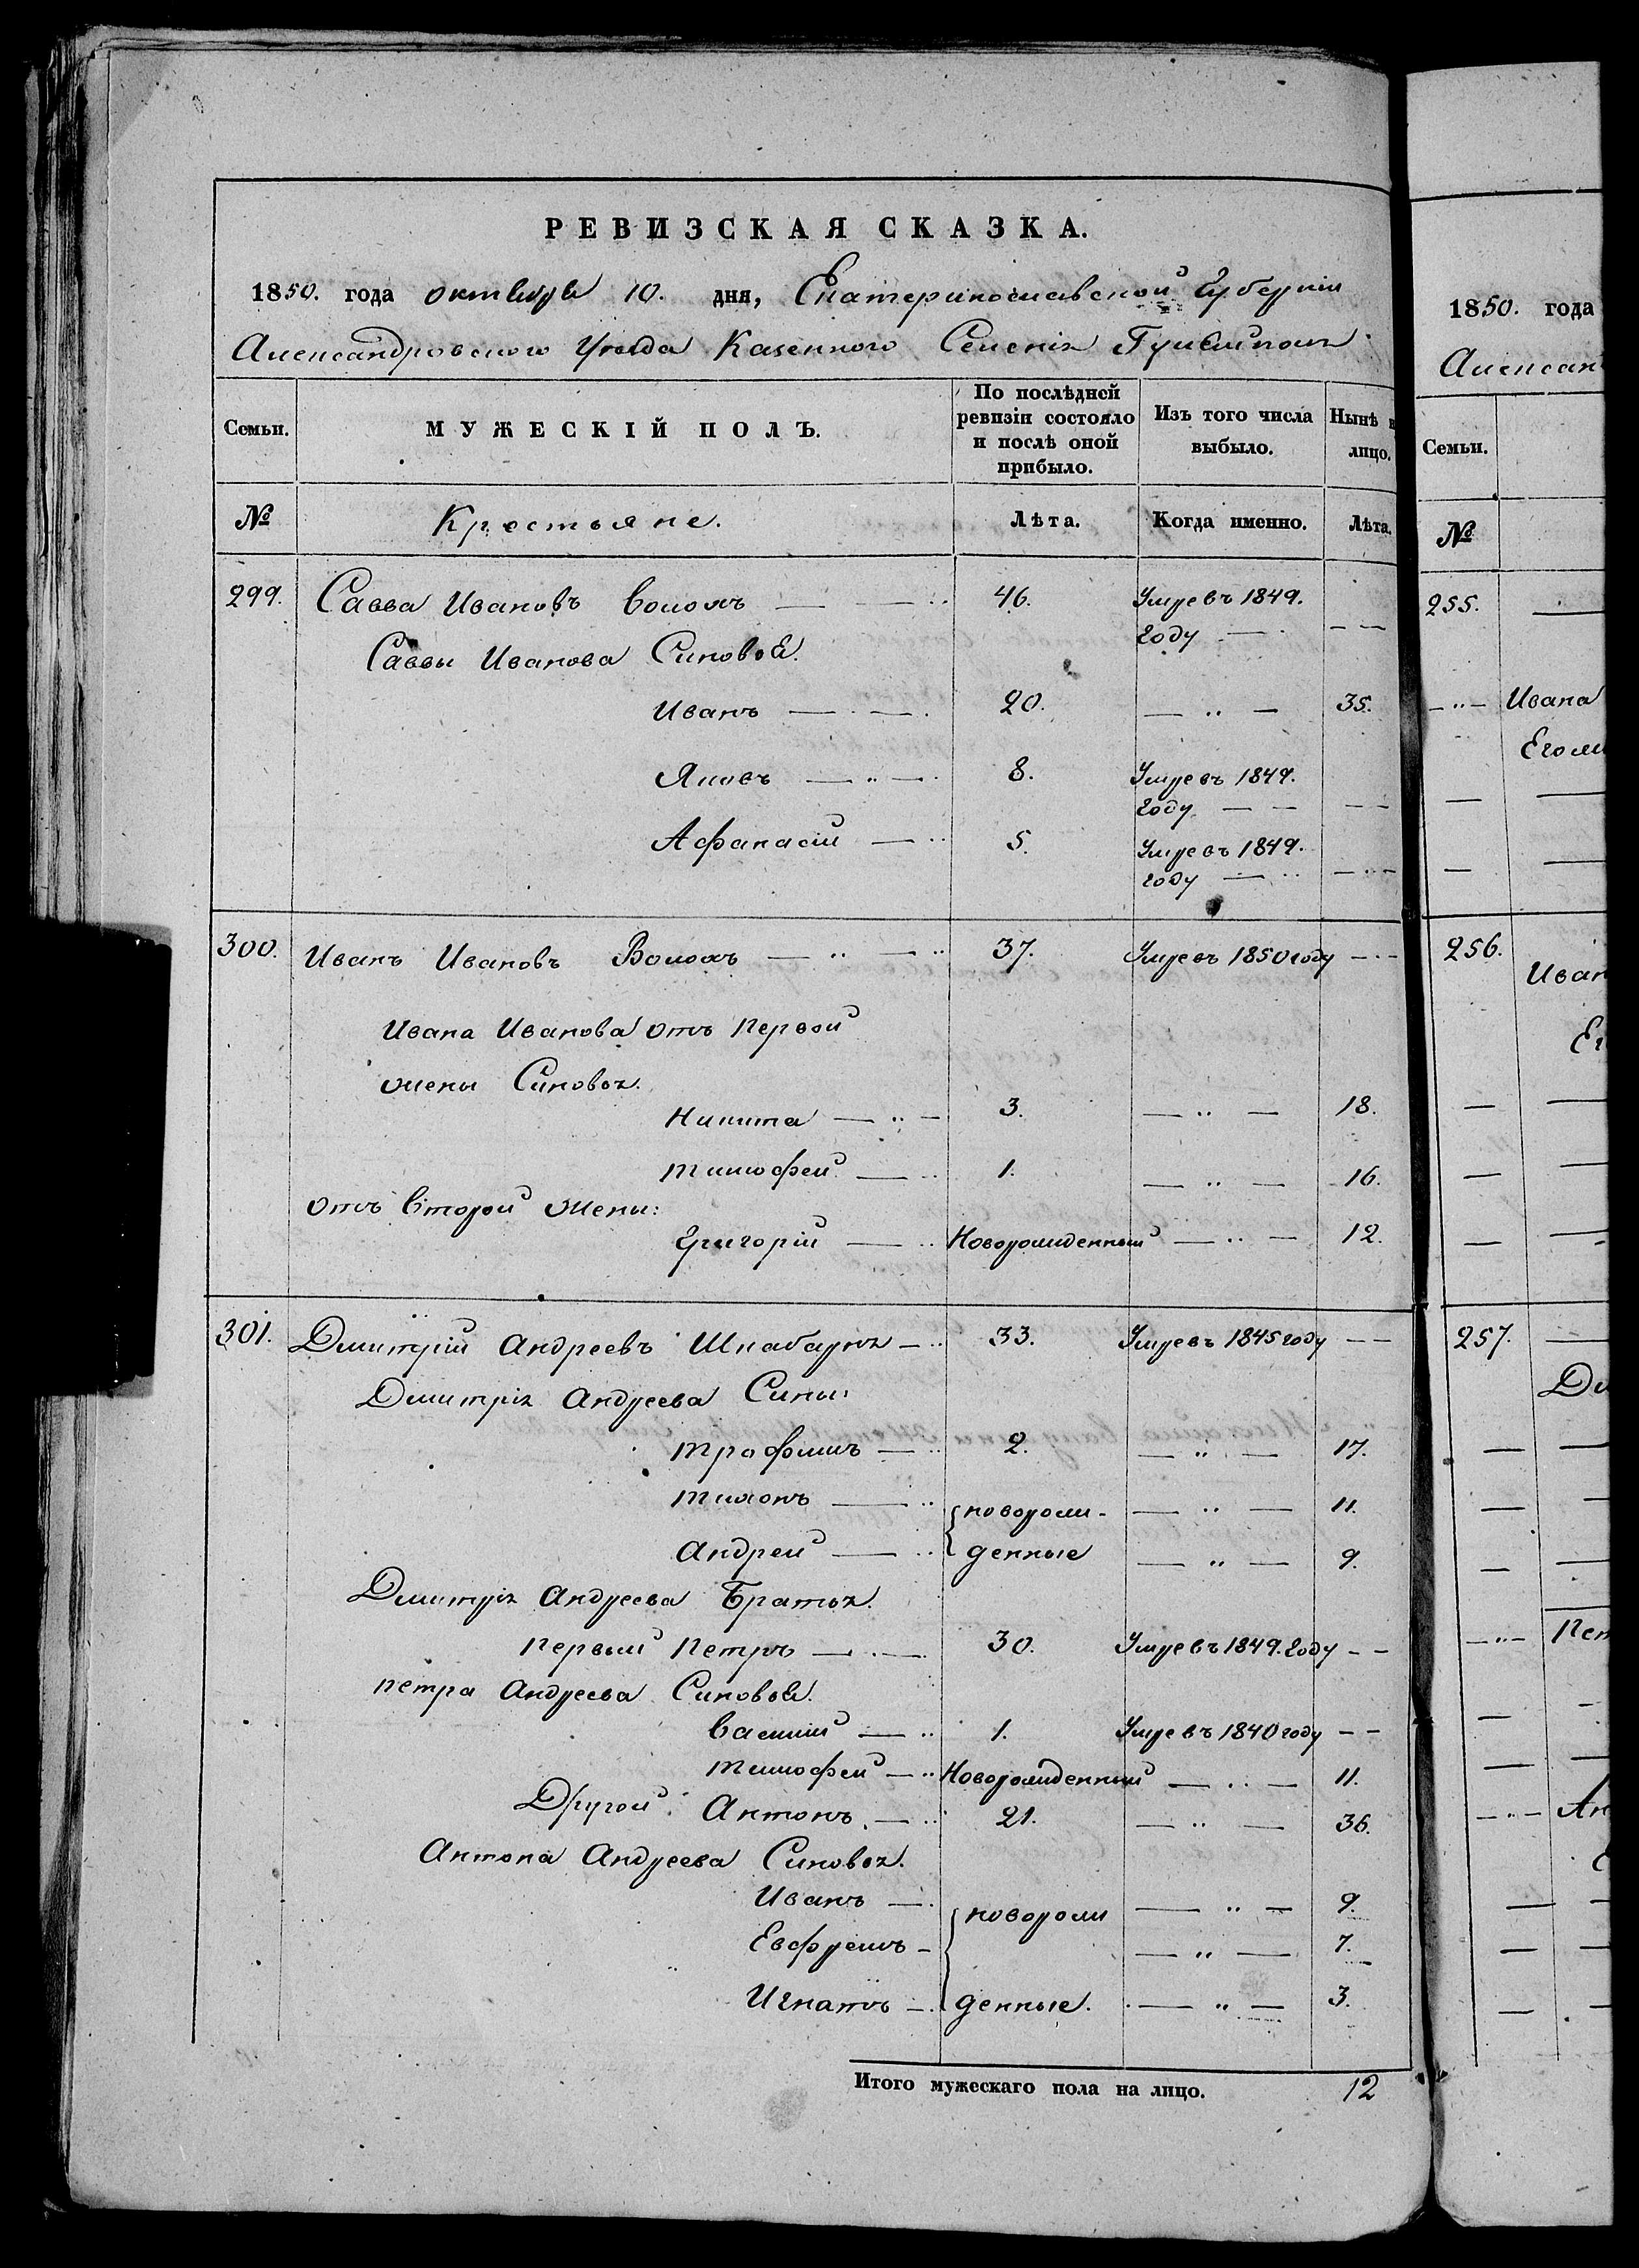 РЕВИЗСКАЯ СКАЗКА.
1850. года октября 10. дня, Екатеринославской Губерніи
Александровского Уезда Казенного Селенія
Семьи. МУЖЕСКІЙ ПОЛЪ. По послѣдней ревизіи состояло и послѣ оной прибыло. Изъ того числа выбыло. Нынѣ н лицо.
№ Крестьяне. Лѣта. Когда именно. Лѣта.
299. Савва Ивановъ Волохъ — — 46. Умре въ 1849. году — — —
Саввы Иванова Синовья.
Иванъ — — 20. — " — 35.
Яковъ — " — 8. Умре въ 1849. году — — — —
Афанасій — 5. Умре въ 1849. году — — —
300. Иванъ Ивановъ Волохъ — " — 37. Умре въ 1850 году — —
Ивана Иванова отъ первой
жены Синовья.
Никита — " — 3. — " — 18.
Тимофей — 1. — " — 16.
отъ второй жены:
Григорій — Новорожденный — " — 12.
301. Дмитрій Андреевъ Шкабарня — 33. Умре въ 1845 году — —
Дмитрія Андреева Сины:
Трофимъ — 2. — " — 17.
Тихонъ — новорож- — " — 11.
Андрей — денные — " — 9.
Дмитрія Андреева Братья.
первый Петръ — — 30. Умре въ 1849. году — —
петра Андреева Синовья.
Василій — 1. Умре въ 1840 году — —
Тимофей — Новорожденный — — 11.
Другой Антонъ — 21. — " — 36.
Антона Андреева Синовья.
Иванъ — новорож — " — 9.
Евфремъ — — " — 7.
Игнатъ — денные. — " — 3.
Итого мужескаго пола на лицо. 12
1850. года
Алексан
Семьи.
№
255. —
— " — Ивана
Его
— —
— —
256. Иван
— —
— —
— —
257. —
Дм
— —
— —
— —
— " — Пет
— —
— —
— " — Ан
— —
— —
— —